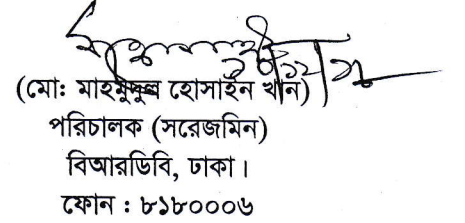 (মো: মাহমুদুল হোসাইন খান)
পরিচালক (সরেজমিন)
বিআরডিবি, ঢাকা।
ফোন : ৮১৮০০০৬